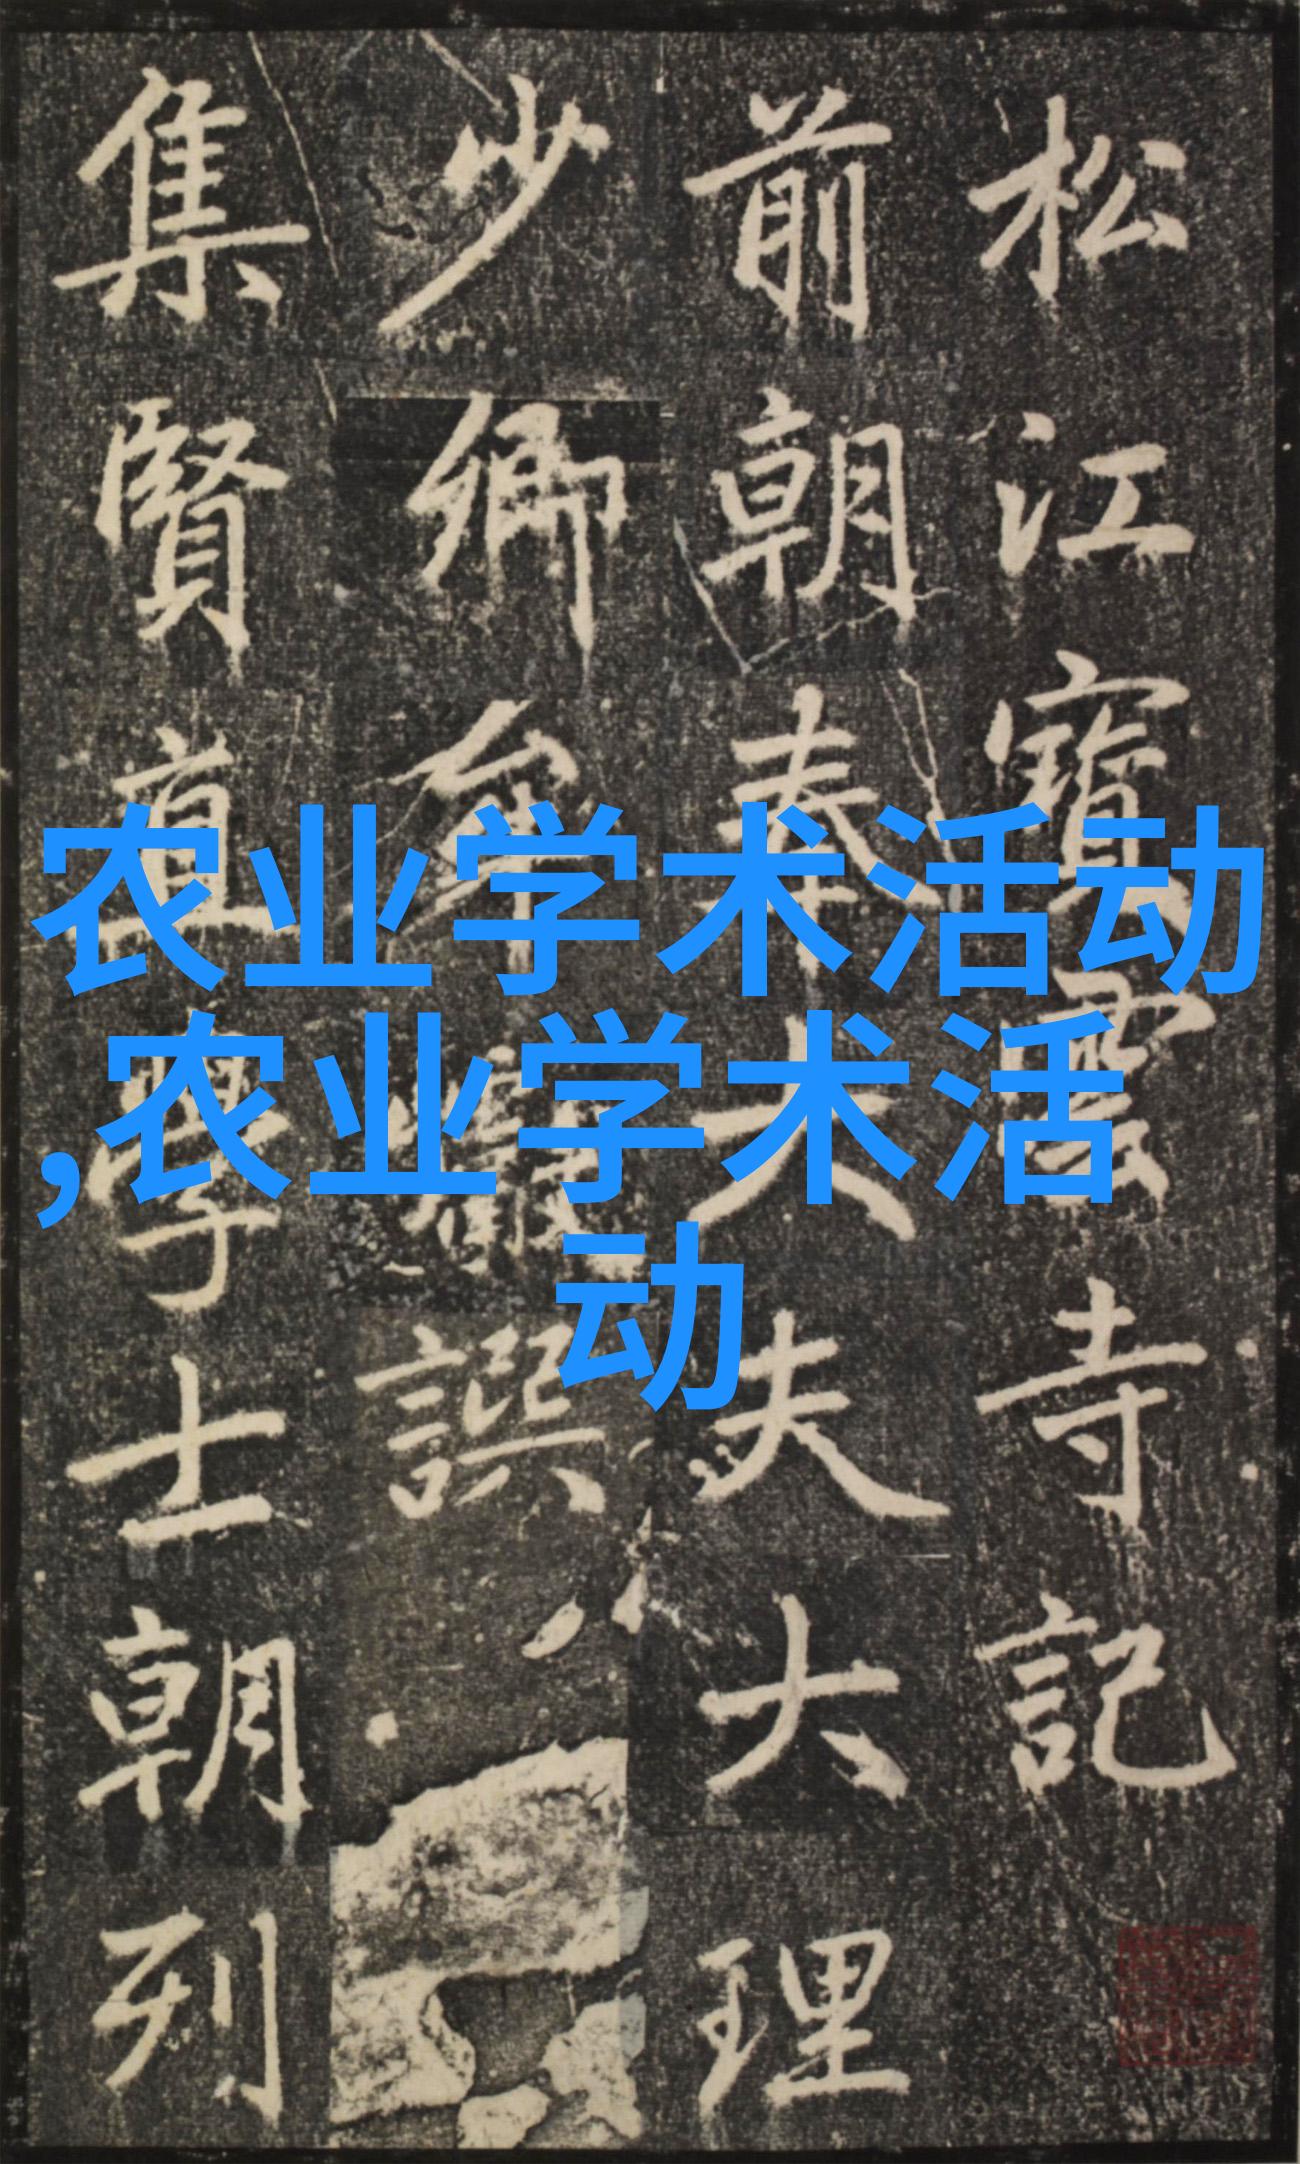 松江寶雲寺記
前朝奉大夫大理
少卿牟巘譔
集賢直學士朝列
农业学术活动
,农业学术活
动